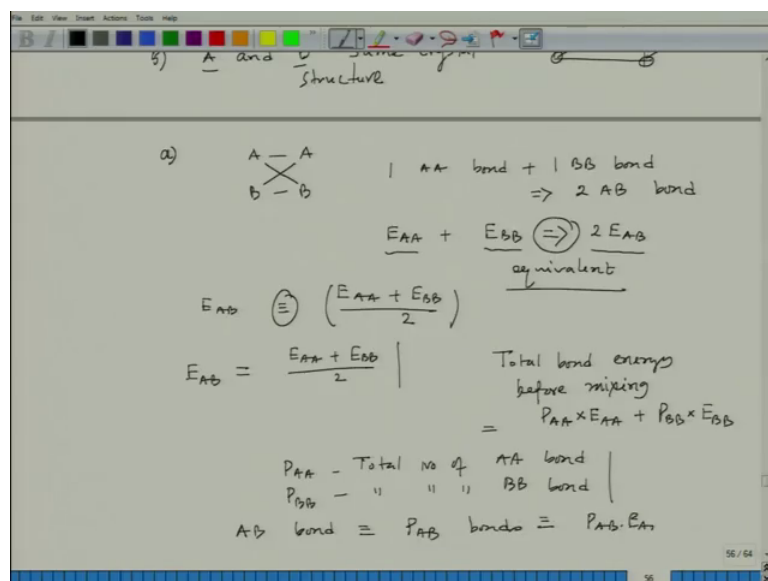 File Edit View Insert Actions Tools Help
B I
b) A and B same crystal
structure
a) A — A
B — B
1 AA bond + 1 BB bond
=> 2 AB bond
E_AA + E_BB => 2 E_AB
equivalent
E_AB ≡ ( (E_AA + E_BB) / 2 )
E_AB = (E_AA + E_BB) / 2
Total bond energy
before mixing
= P_AA × E_AA + P_BB × E_BB
P_AA - Total no of AA bond
P_BB - " " " BB bond
AB bond ≡ P_AB bonds ≡ P_AB . E_A
56 / 64
56